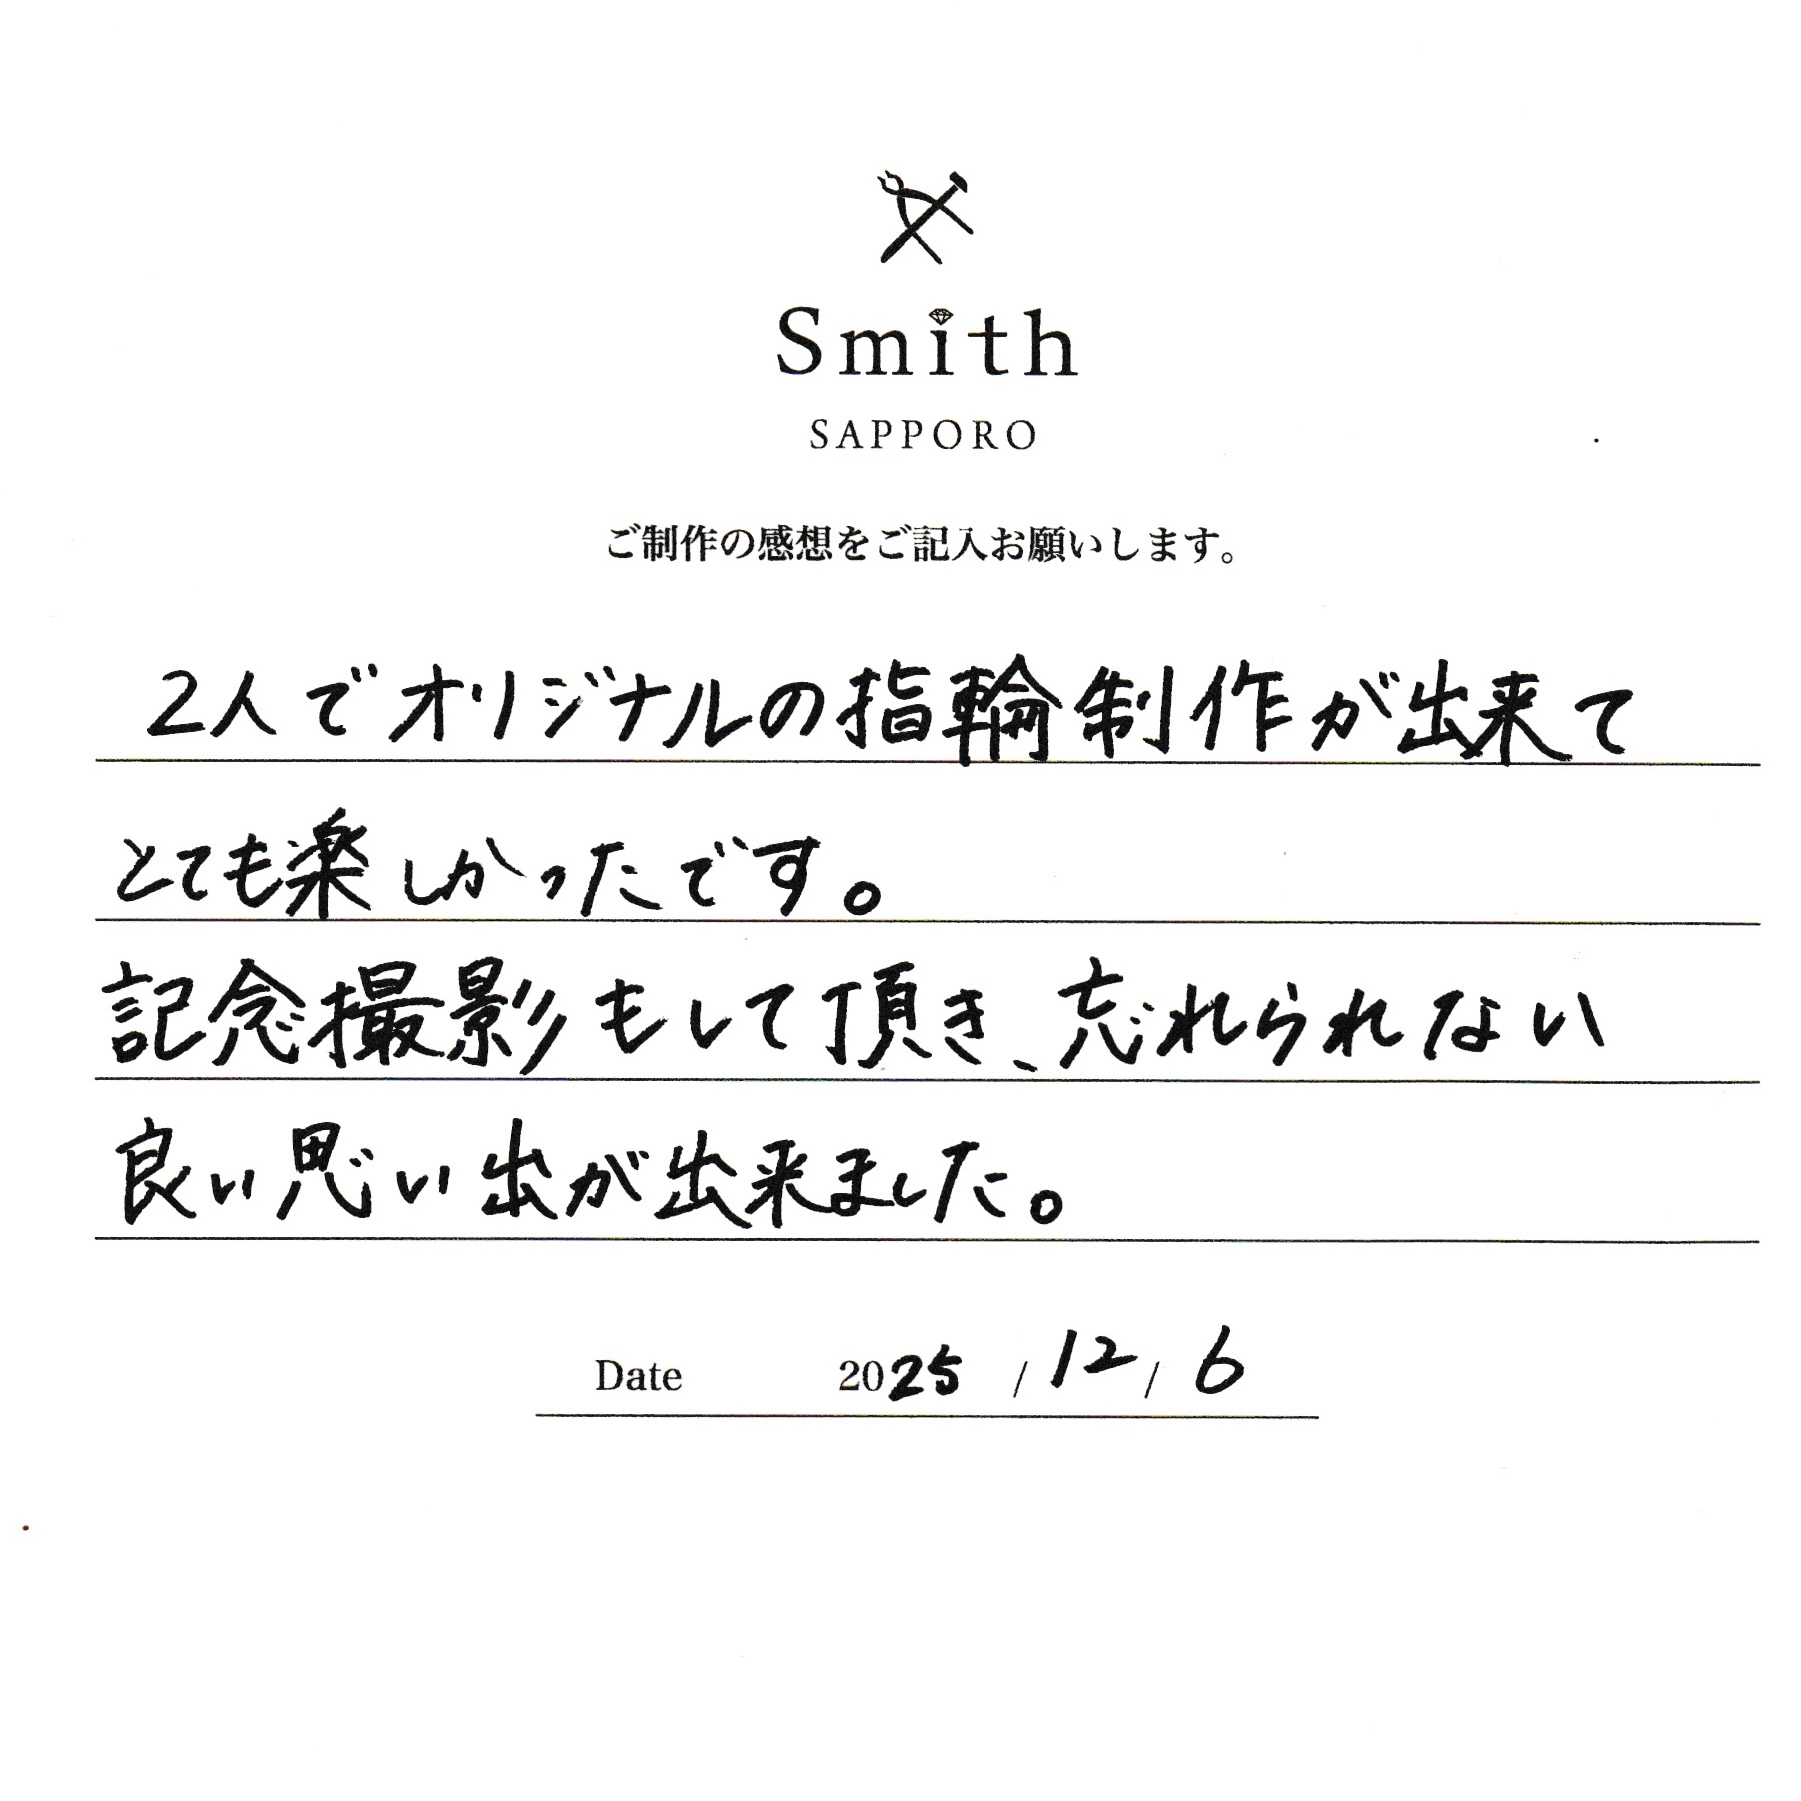 Smith
SAPPORO
ご制作の感想をご記入お願いします。
2人でオリジナルの指輪制作が出来て
とても楽しかったです。
記念撮影もして頂き、忘れられない
良い思い出が出来ました。
Date 2025 / 12 / 6